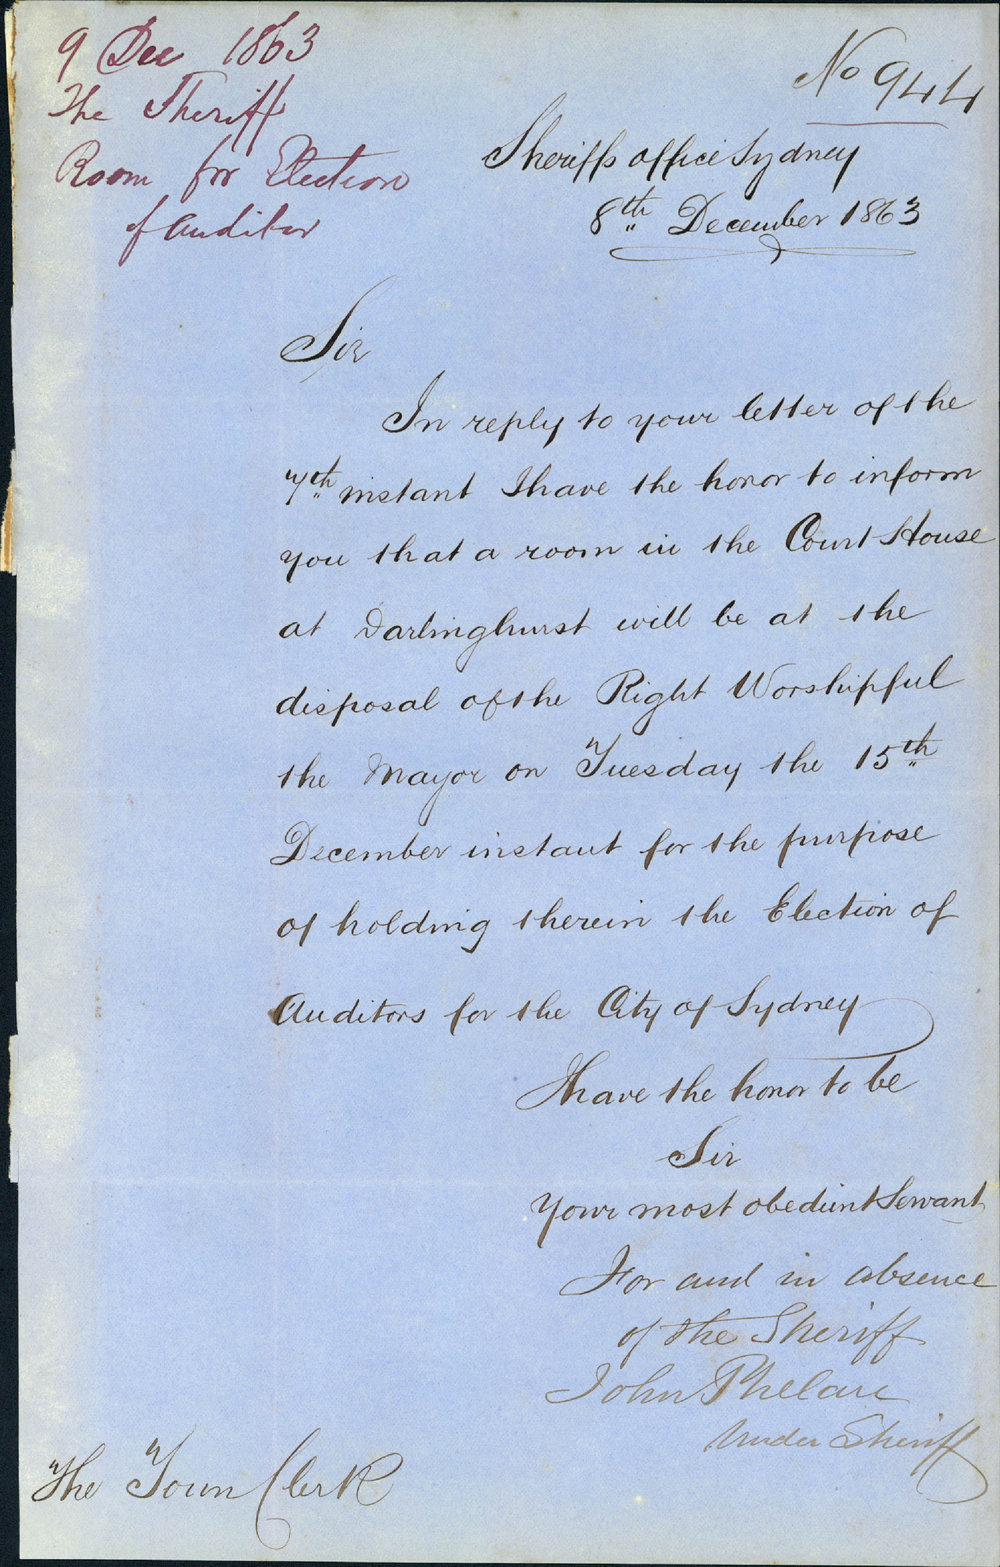 9 Dec 1863
The Sheriff
Room for Election
of Auditor
No 944
Sheriffs office Sydney
8th December 1863
Sir
In reply to your letter of the
7th instant I have the honor to inform
you that a room in the Court House
at Darlinghurst will be at the
disposal of the Right Worshipful
the Mayor on Tuesday the 15th
December instant for the purpose
of holding therein the Election of
Auditors for the City of Sydney
I have the honor to be
Sir
Your most obedient Servant
For and in absence
of the Sheriff
John Phelan
Under Sheriff
The Town Clerk